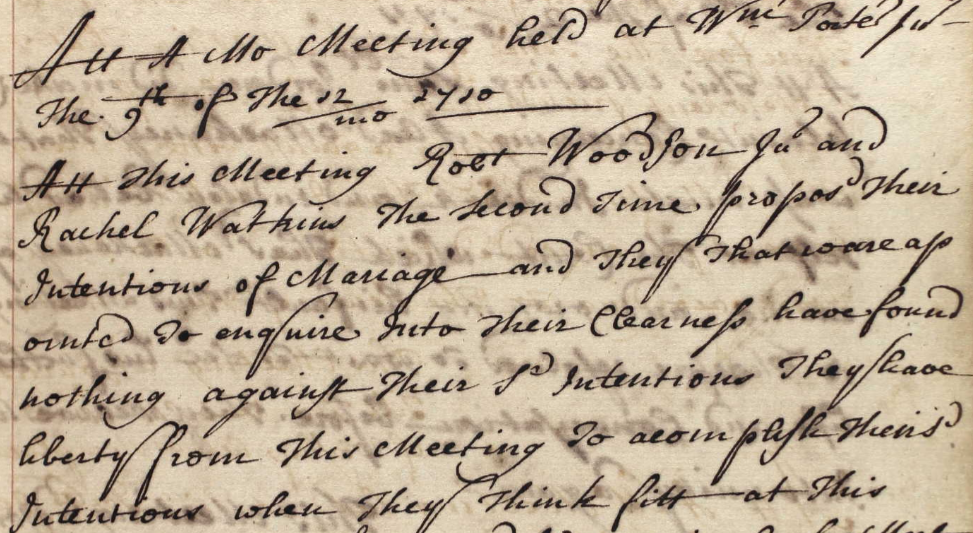 Att A Mo Meeting held at Wm Porters Junr
The 9th of The 12 mo 1710
Att This Meeting Robt Woodson Jur and
Rachel Watkins The Second Time proposd Their
Intentions of Mariage and They That ware ap
ointed To enquire Into Their Clearness have found
nothing against Their Sd Intentions They have
liberty from This Meeting To acomplish Their Sd
Intentions when They Think fitt at This